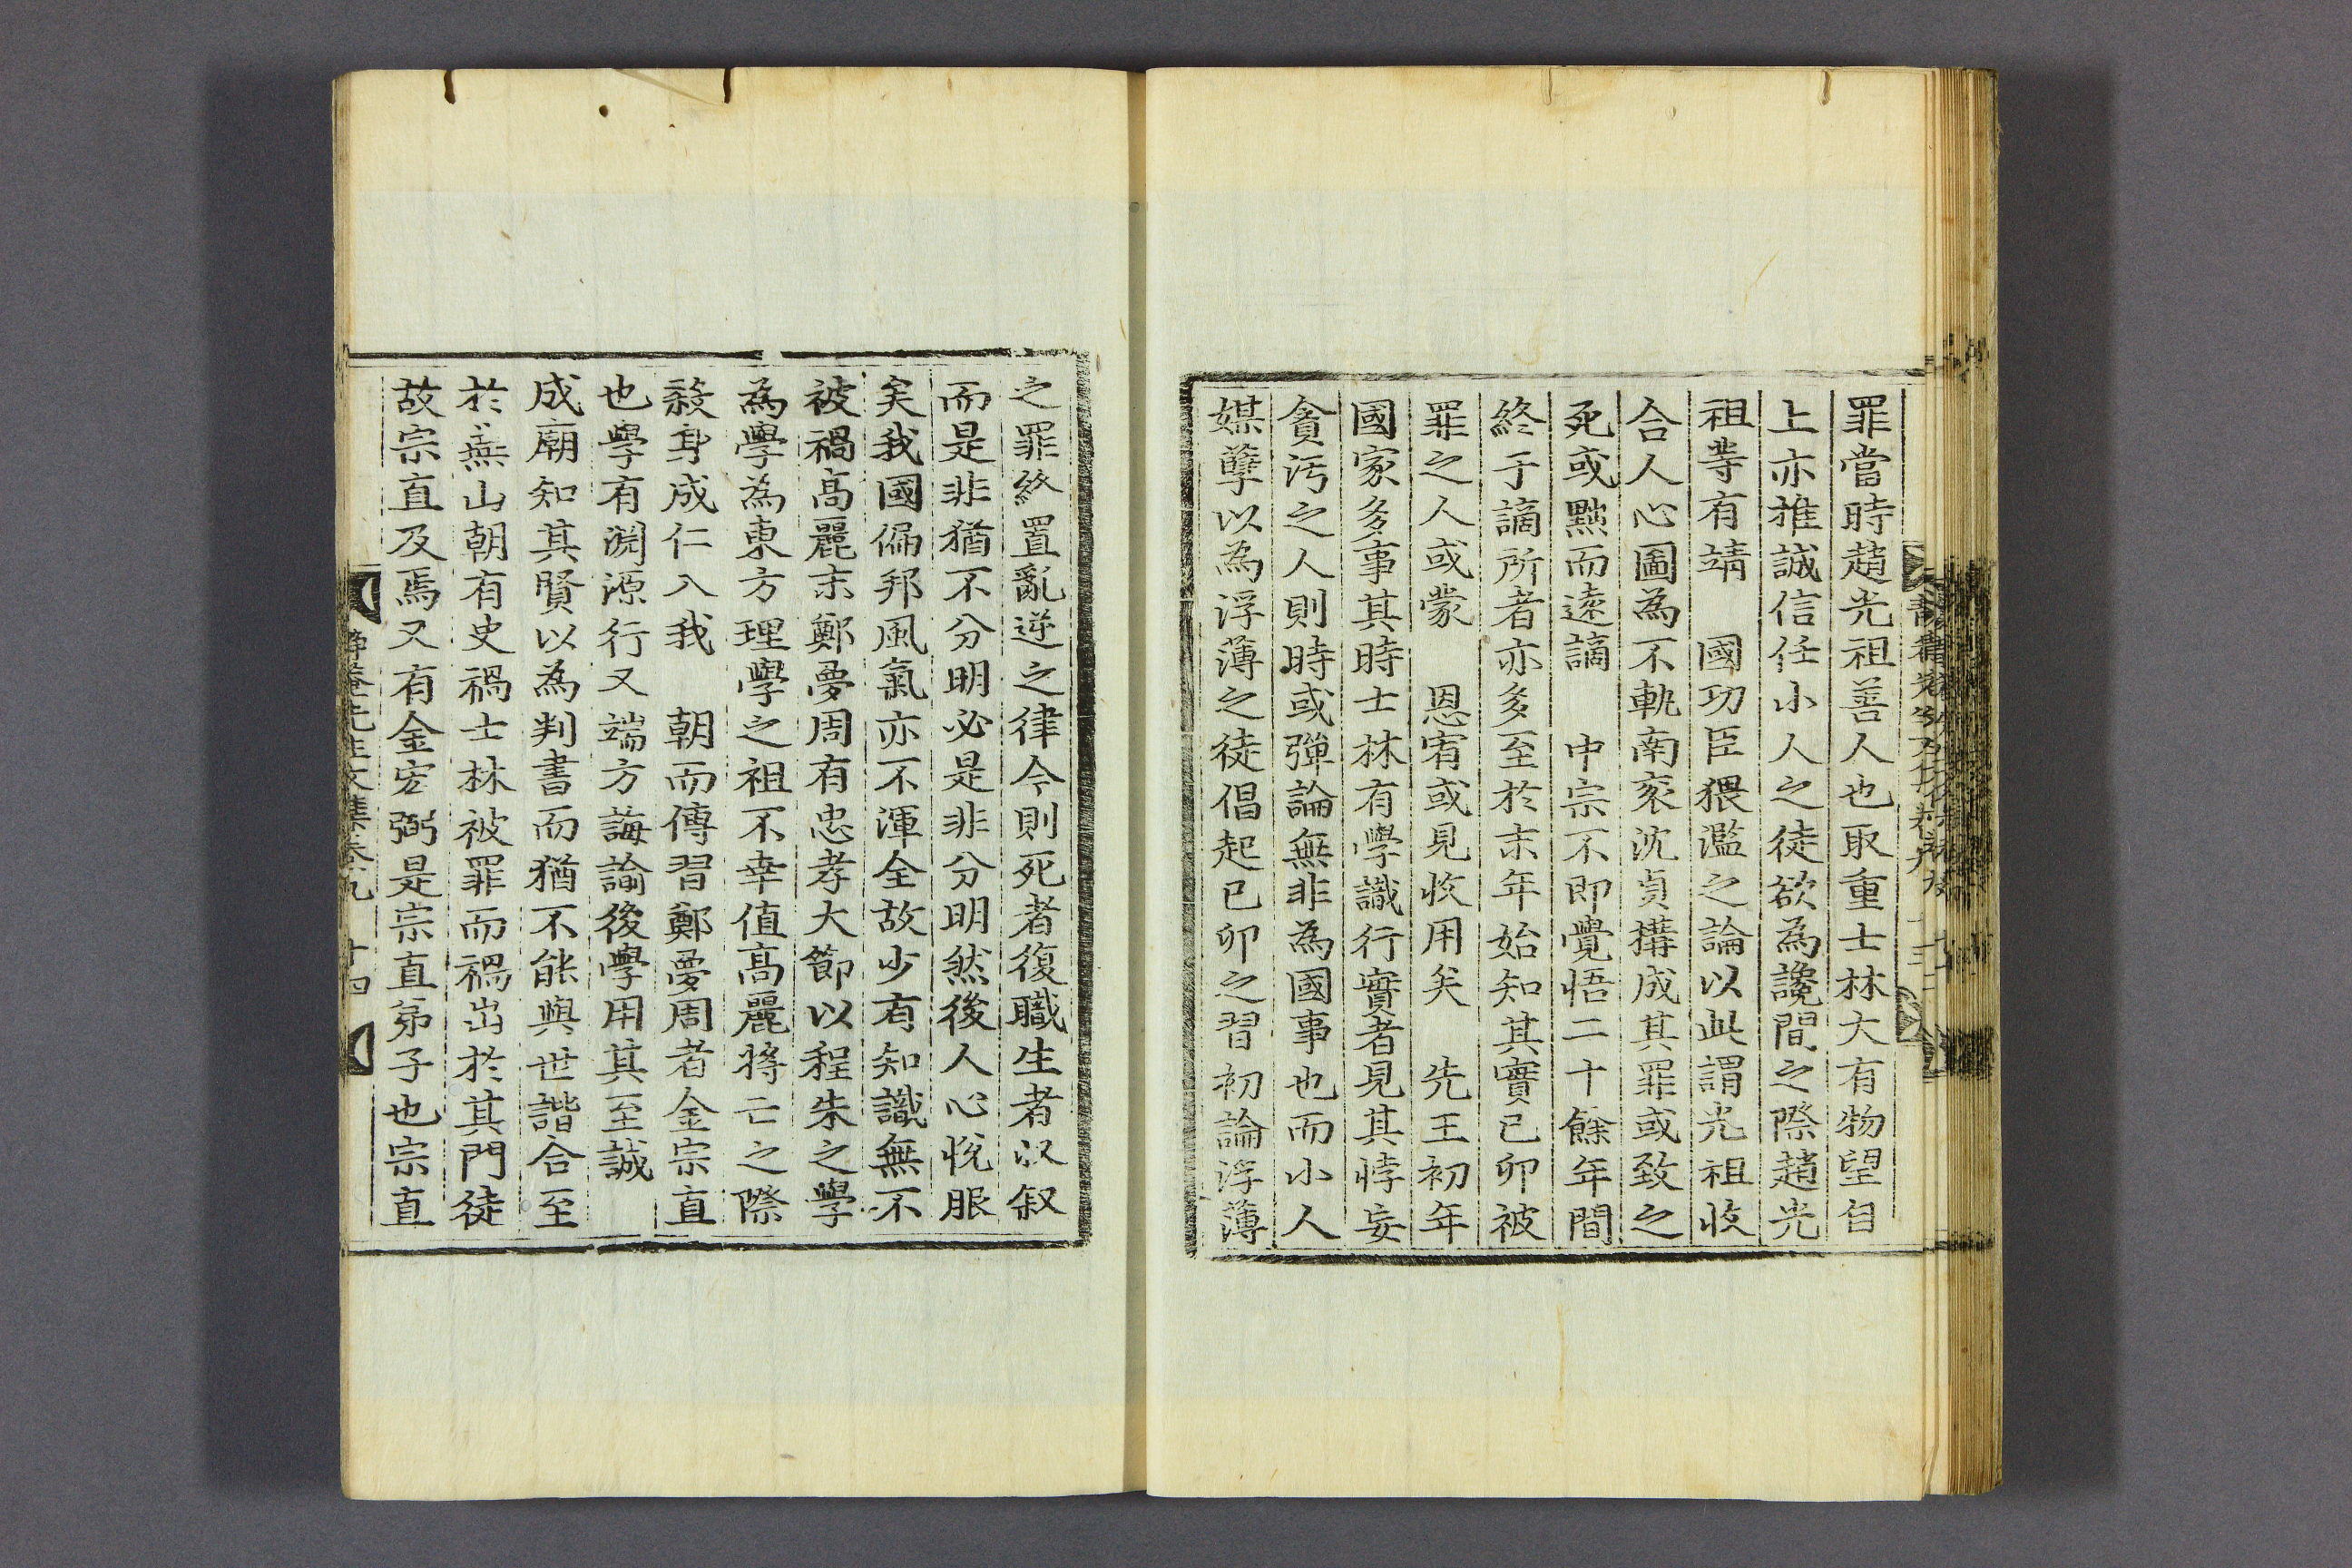 罪當時趙光祖善人也取重士林大有物望自
上亦推誠信任小人之徒欲為讒間之際趙光
祖等有靖　國功臣猥濫之論以此謂光祖收
合人心圖為不軌南袞沈貞構成其罪或致之
死或黥而遠謫　中宗不即覺悟二十餘年間
終于謫所者亦多至於末年始知其實已卯被
罪之人或蒙　恩宥或見收用矣　先王初年
國家多事其時士林有學識行實者見其悖妄
貪汚之人則時或彈論無非為國事也而小人
媒孼以為浮薄之徒倡起已卯之習初論浮薄
之罪終置亂逆之律今則死者復職生者收叙
而是非猶不分明必是非分明然後人心悅服
矣我國偏邦風氣亦不渾全故少有知識無不
被禍高麗末鄭夢周有忠孝大節以程朱之學
為學為東方理學之祖不幸值高麗將亡之際
殺身成仁入我　朝而傳習鄭夢周者金宗直
也學有淵源行又端方誨諭後學用其至誠
成廟知其賢以為判書而猶不能與世諧合至
於燕山朝有史禍士林被罪而禍出於其門徒
故宗直及焉又有金宏弼是宗直弟子也宗直
靜菴先生文集卷九　十四